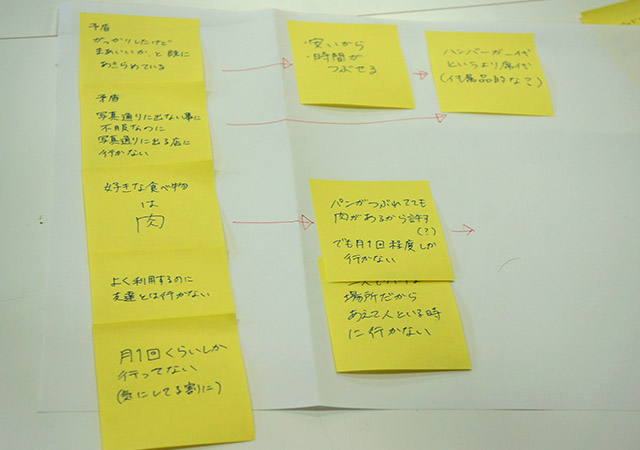 矛盾
がっかりしたけど
まあいいか、と既に
あきらめている
矛盾
写真通りに出ない事に
不服なのに
写真通りに出る店に
行かない
好きな食べ物
は
肉
よく利用するのに
友達とは行かない
月1回くらいしか
行ってない
(気にしてる割に)
・安いから
・時間が
つぶせる
ハンバーガー代
というより席代
(付属品的な?)
パンがつぶれてても
肉があるから許す
(?)
でも月1回程度しか
行かない
場所だから
あえて人といる時
に行かない